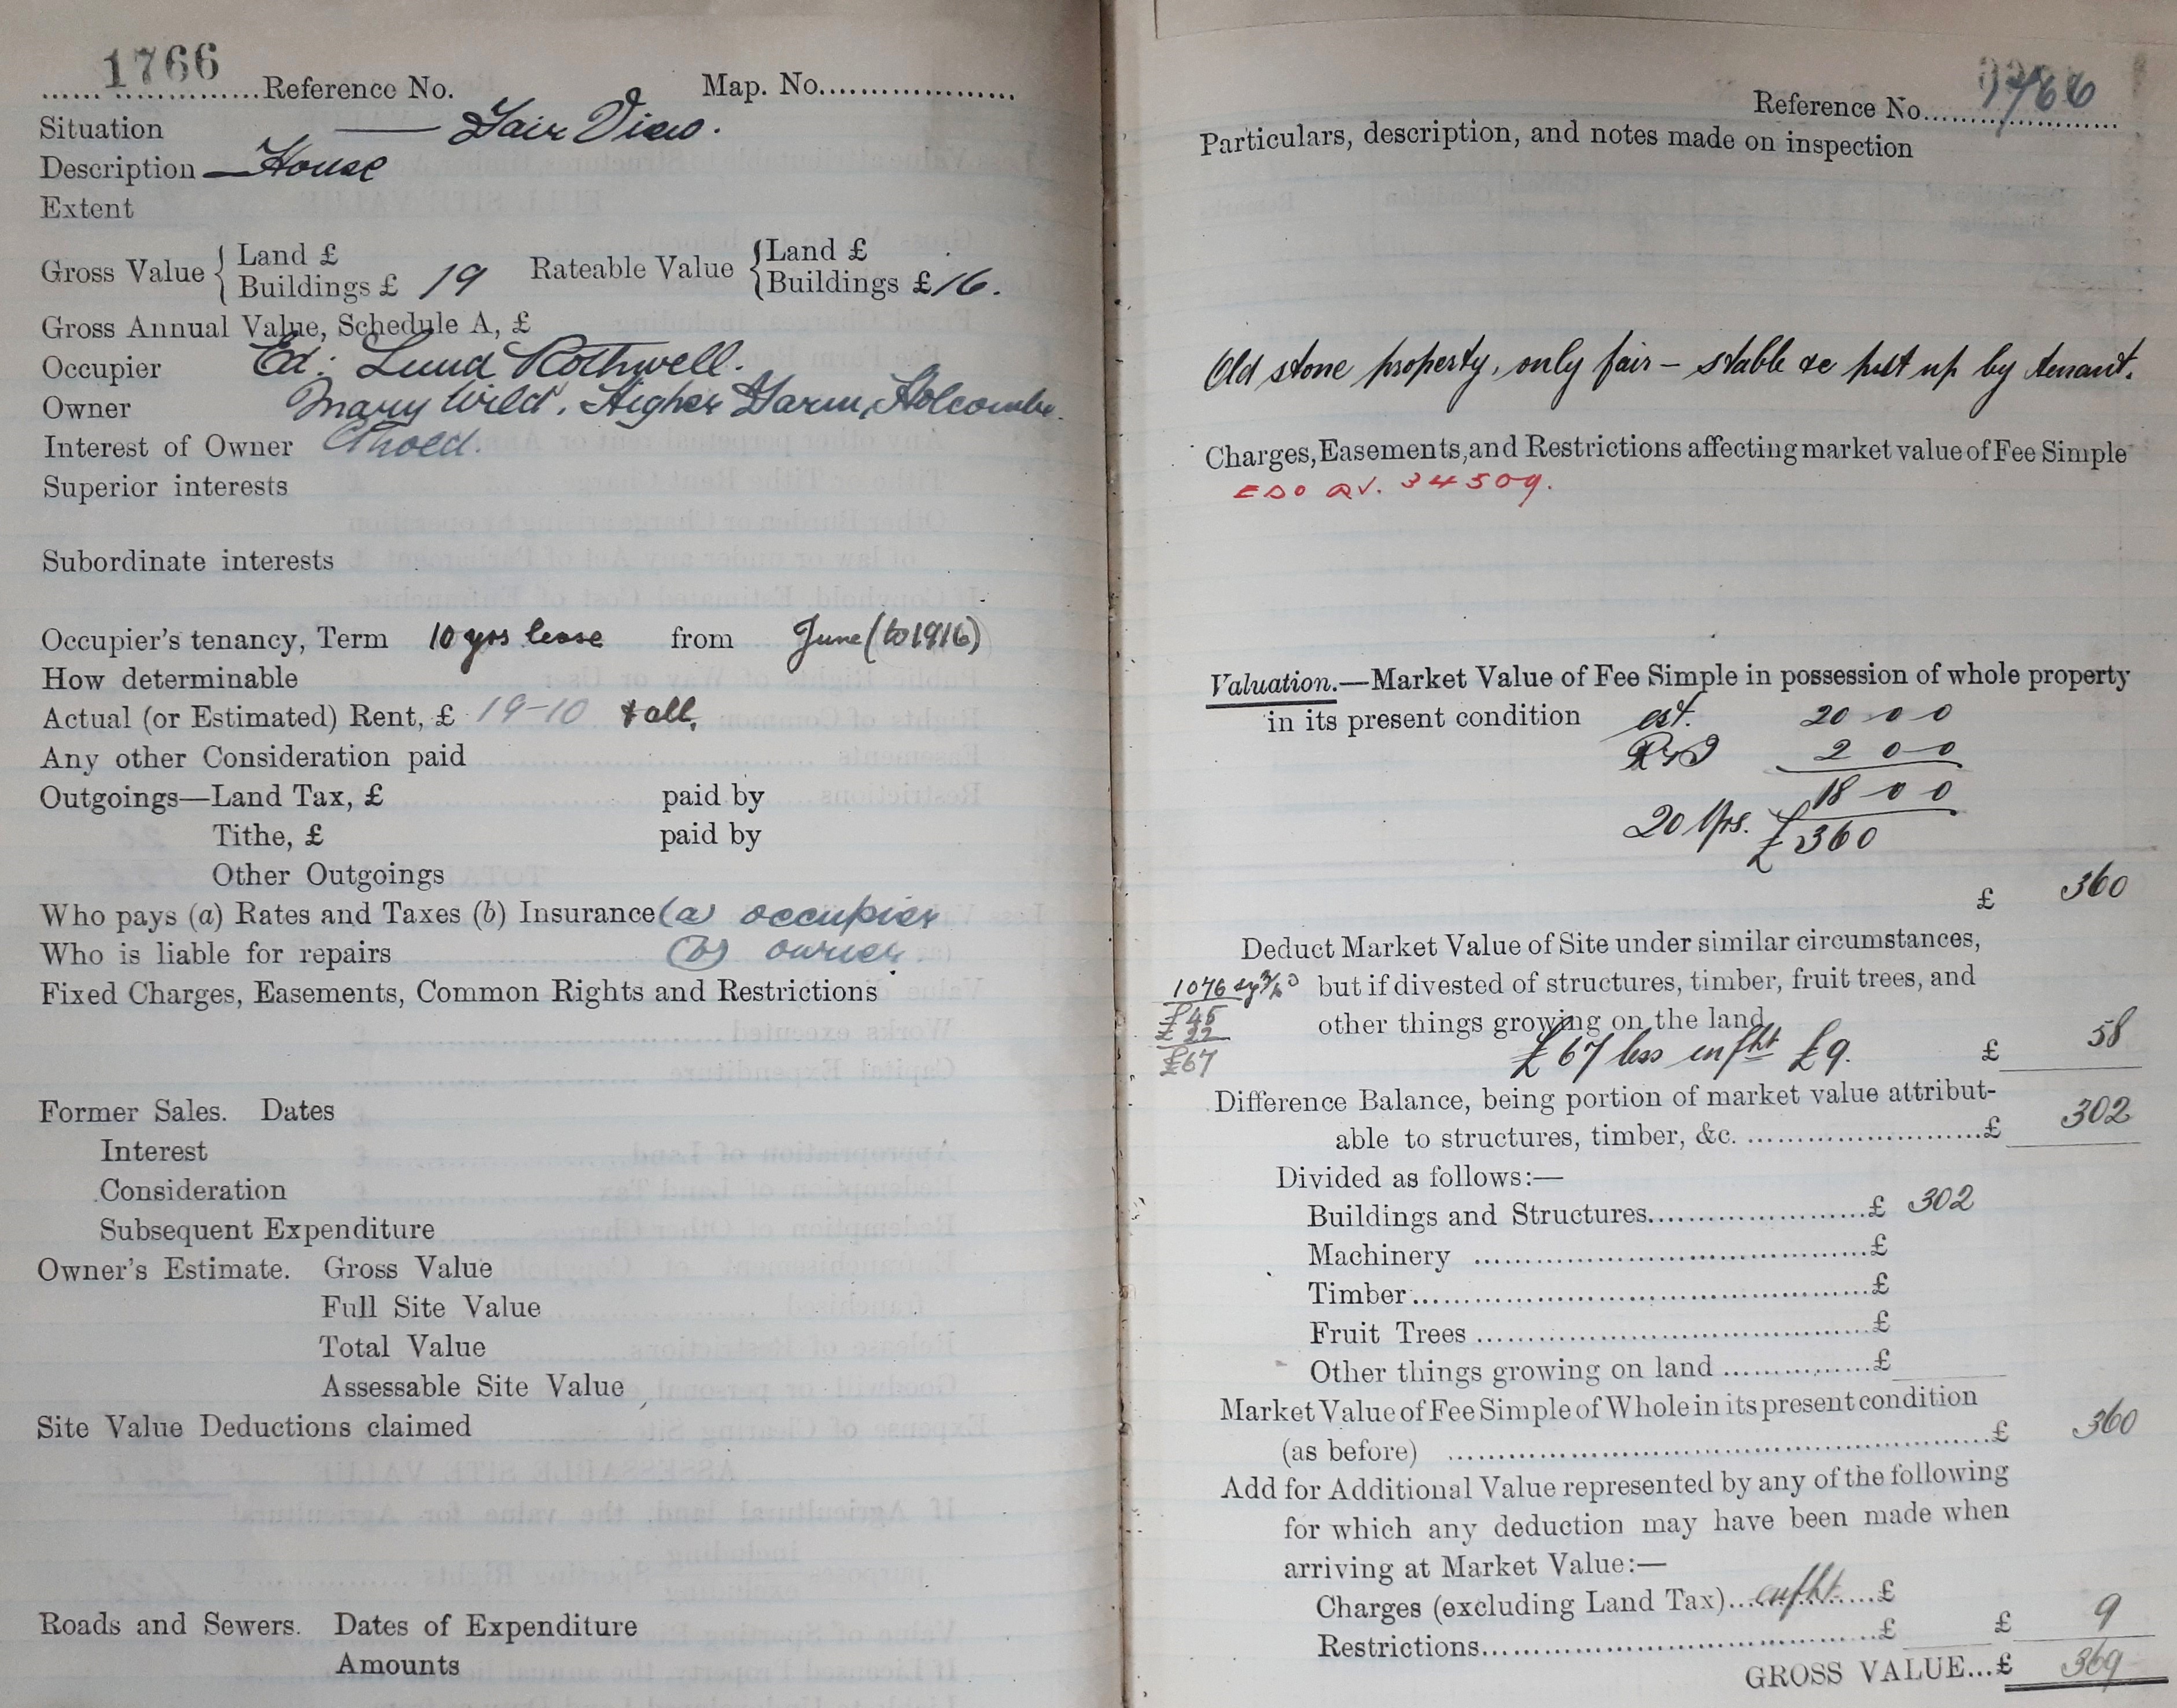 1766
Reference No. Map. No.
Situation — Fair View.
Description — House
Extent
Gross Value { Land £
Buildings £ 19
Rateable Value { Land £
Buildings £ 16.
Gross Annual Value, Schedule A, £
Occupier Ed: Lund Rothwell.
Owner Mary Wild, Higher Farm, Holcombe.
Interest of Owner C'hold.
Superior interests
Subordinate interests
Occupier's tenancy, Term 10 yrs lease from June (to 1916)
How determinable
Actual (or Estimated) Rent, £ 19-10 & all.
Any other Consideration paid
Outgoings—Land Tax, £ paid by
Tithe, £ paid by
Other Outgoings
Who pays (a) Rates and Taxes (b) Insurance (a) occupier
Who is liable for repairs (b) owner.
Fixed Charges, Easements, Common Rights and Restrictions
Former Sales. Dates
Interest
Consideration
Subsequent Expenditure
Owner's Estimate. Gross Value
Full Site Value
Total Value
Assessable Site Value
Site Value Deductions claimed
Roads and Sewers. Dates of Expenditure
Amounts
Reference No. 1766
Particulars, description, and notes made on inspection
Old stone property, only fair – stable &c put up by tenant.
Charges, Easements, and Restrictions affecting market value of Fee Simple
EDO QV. 34509.
Valuation.—Market Value of Fee Simple in possession of whole property
in its present condition est. 20 0 0
2 0 0
18 0 0
20 Yrs. £360
£ 360
Deduct Market Value of Site under similar circumstances,
1076 but if divested of structures, timber, fruit trees, and
£45 other things growing on the land
£22
£67
£67 less enfht £9. £ 58
Difference Balance, being portion of market value attribut-
able to structures, timber, &c. £ 302
Divided as follows:—
Buildings and Structures £ 302
Machinery £
Timber £
Fruit Trees £
Other things growing on land £
Market Value of Fee Simple of Whole in its present condition
(as before) £ 360
Add for Additional Value represented by any of the following
for which any deduction may have been made when
arriving at Market Value:—
Charges (excluding Land Tax) enfht. £
Restrictions £ £ 9
GROSS VALUE...£ 369